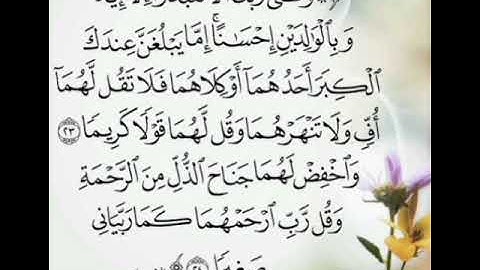 وَقَضَىٰ رَبُّكَ أَلَّا تَعْبُدُوٓا۟ إِلَّآ إِيَّاهُ
وَبِٱلْوَٰلِدَيْنِ إِحْسَٰنًا ۚ إِمَّا يَبْلُغَنَّ عِندَكَ
ٱلْكِبَرَ أَحَدُهُمَآ أَوْ كِلَاهُمَا فَلَا تَقُل لَّهُمَآ
أُفٍّ وَلَا تَنْهَرْهُمَا وَقُل لَّهُمَا قَوْلًا كَرِيمًا ٢٣
وَٱخْفِضْ لَهُمَا جَنَاحَ ٱلذُّلِّ مِنَ ٱلرَّحْمَةِ
وَقُل رَّبِّ ٱرْحَمْهُمَا كَمَا رَبَّيَانِى
صَغِيرًا